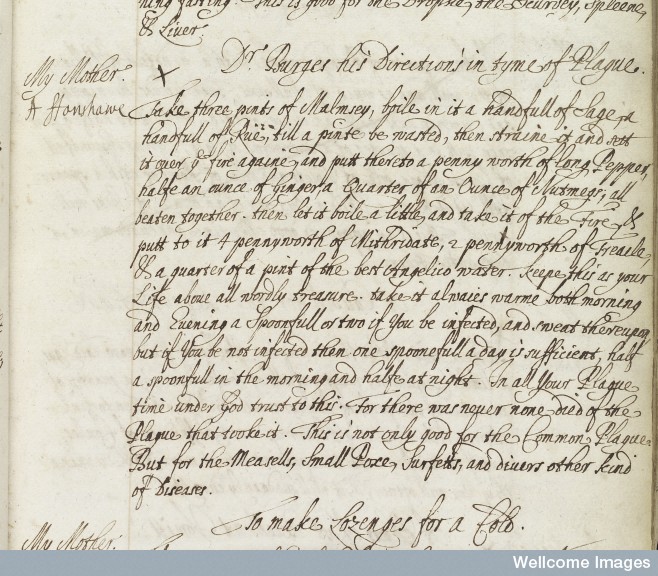 ning fasting. This is good for one Dropsie, the Scurvey, Spleene,
& Liver.
My Mother.
A Honshawe
X
Dr. Burges his Directions in tyme of Plague.
Take three pints of Malmsey, boile in it a handfull of Sage, a
handfull of Rue, till a pinte be wasted, then straine it and sett
it over ye fire againe, and putt thereto a penny worth of long Pepper,
halfe an ounce of Ginger, a Quarter of an Ounce of Nutmegs, all
beaten together. then let it boile a little, and take it of the fire, &
putt to it 4 pennyworth of Mithridate, 2 pennyworth of Treacle,
& a quarter of a pint of the best Angelico water. Keepe this as your
Life above all wordly treasure. take it alwaies warme both morning
and Evening a Spoonfull or two if You be infected, and sweat thereupon,
but if You be not infected then one spoonefull a day is sufficient, half
a spoonfull in the morning and halfe at night. In all Your Plague
time under God trust to this. For there was never none died of the
Plague that tooke it. This is not only good for the Common Plague
But for the Measells, Small Poxe, Surfetts, and divers other kind
of Diseases.
To make Lozenges for a Cold.
My Mother.
Wellcome Images